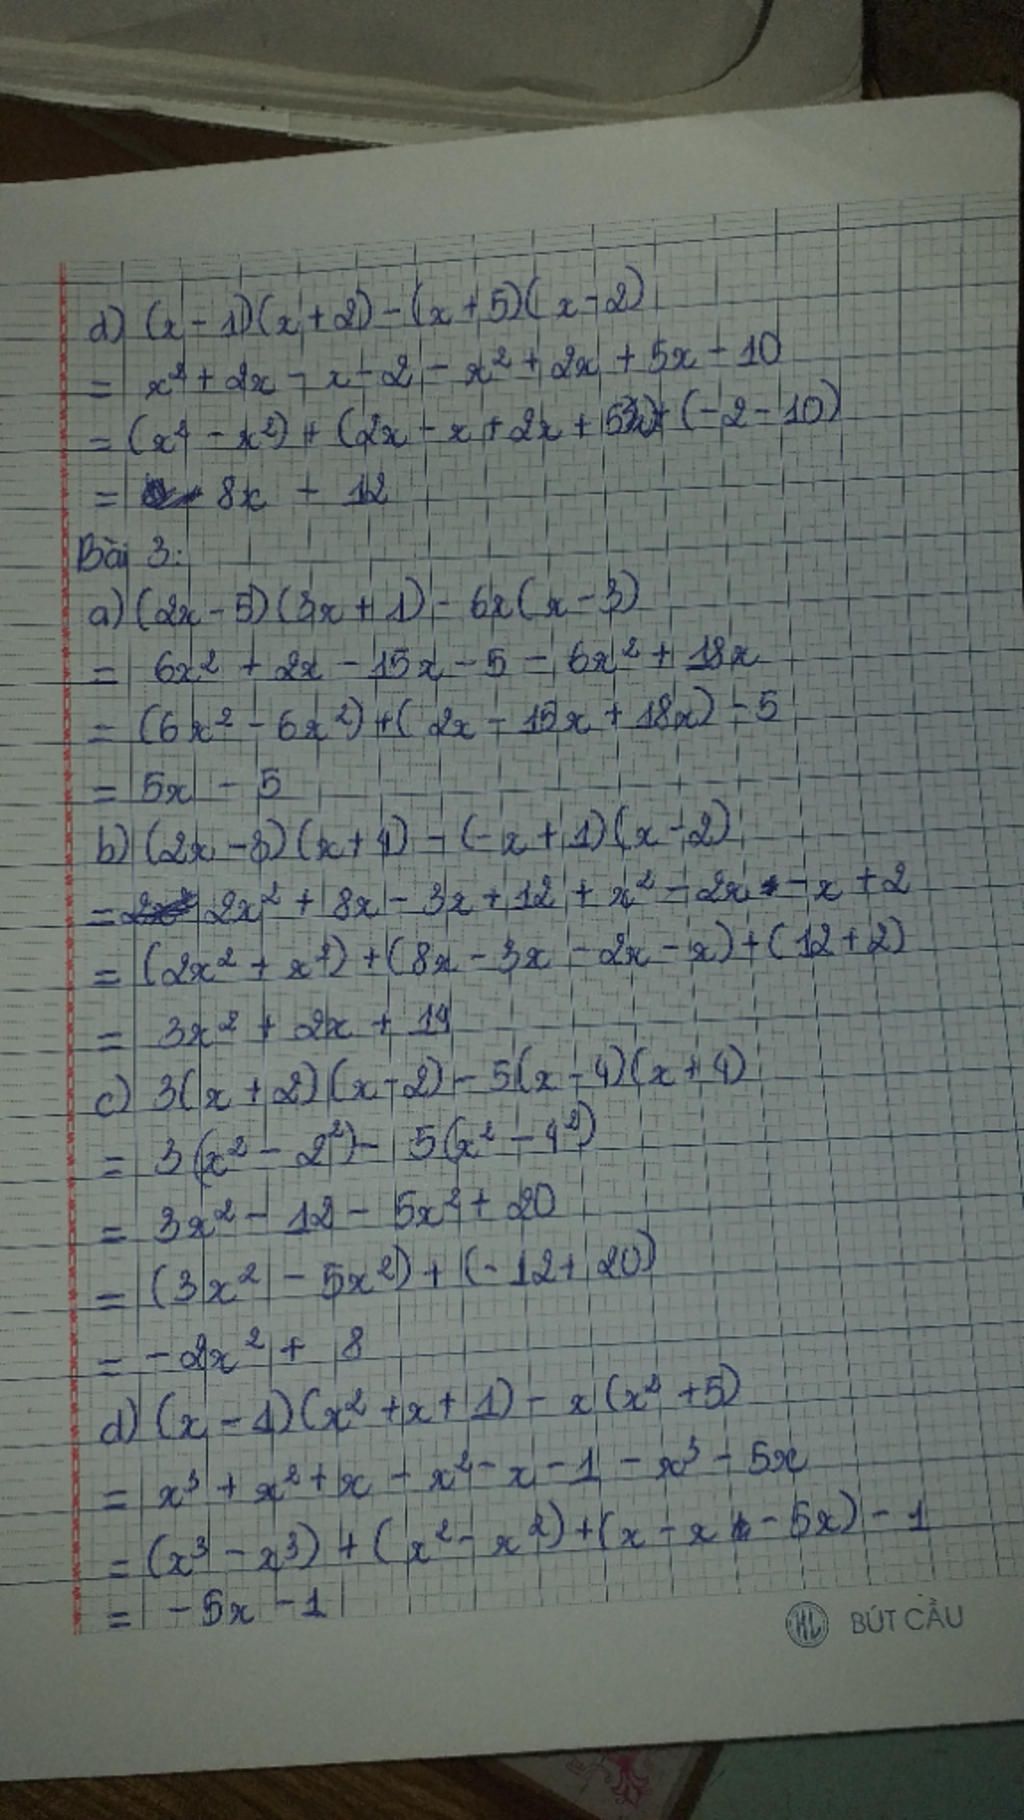 d) (x - 1)(x + 2) - (x + 5)(x - 2)
= x² + 2x - x - 2 - x² + 2x + 5x - 10
= (x² - x²) + (2x - x + 2x + 5x) + (-2 - 10)
= 8x - 12
Bài 3:
a) (2x - 5)(3x + 1) - 6x(x - 3)
= 6x² + 2x - 15x - 5 - 6x² + 18x
= (6x² - 6x²) + (2x - 15x + 18x) - 5
= 5x - 5
b) (2x - 3)(x + 4) - (-x + 1)(x - 2)
= 2x² + 8x - 3x + 12 + x² - 2x - x + 2
= (2x² + x²) + (8x - 3x - 2x - x) + (12 + 2)
= 3x² + 2x + 14
c) 3(x + 2)(x - 2) - 5(x - 4)(x + 4)
= 3(x² - 2²) - 5(x² - 4²)
= 3x² - 12 - 5x² + 20
= (3x² - 5x²) + (-12 + 20)
= -2x² + 8
d) (x - 1)(x² + x + 1) - x(x² + 5)
= x³ + x² + x - x² - x - 1 - x³ - 5x
= (x³ - x³) + (x² - x²) + (x - x - 5x) - 1
= -5x - 1
HL BÚT CẦU